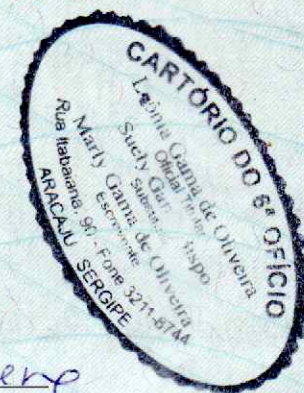 CARTÓRIO DO 6º OFÍCIO
Leônia Gama de Oliveira
Oficial Titular
Suely Gama Bispo
Substituta
Marly Gama de Oliveira
Escrevente
Rua Itabaiana, 90 - Fone 3211-8744
ARACAJU SERGIPE